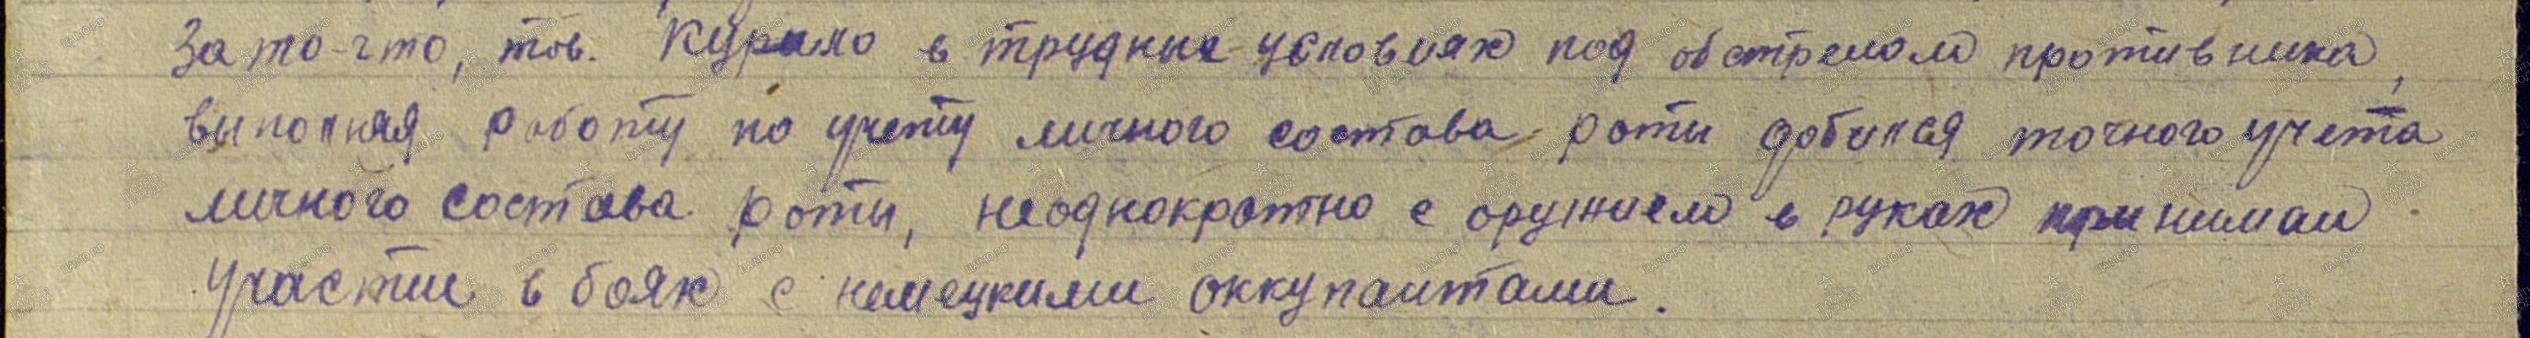 За то-что, тов. Курило в трудных условиях под обстрелом противника,
выполняя работу по учету личного состава роты добился точного учета
личного состава роты, неоднократно с оружием в руках принимал
участие в боях с немецкими оккупантами.